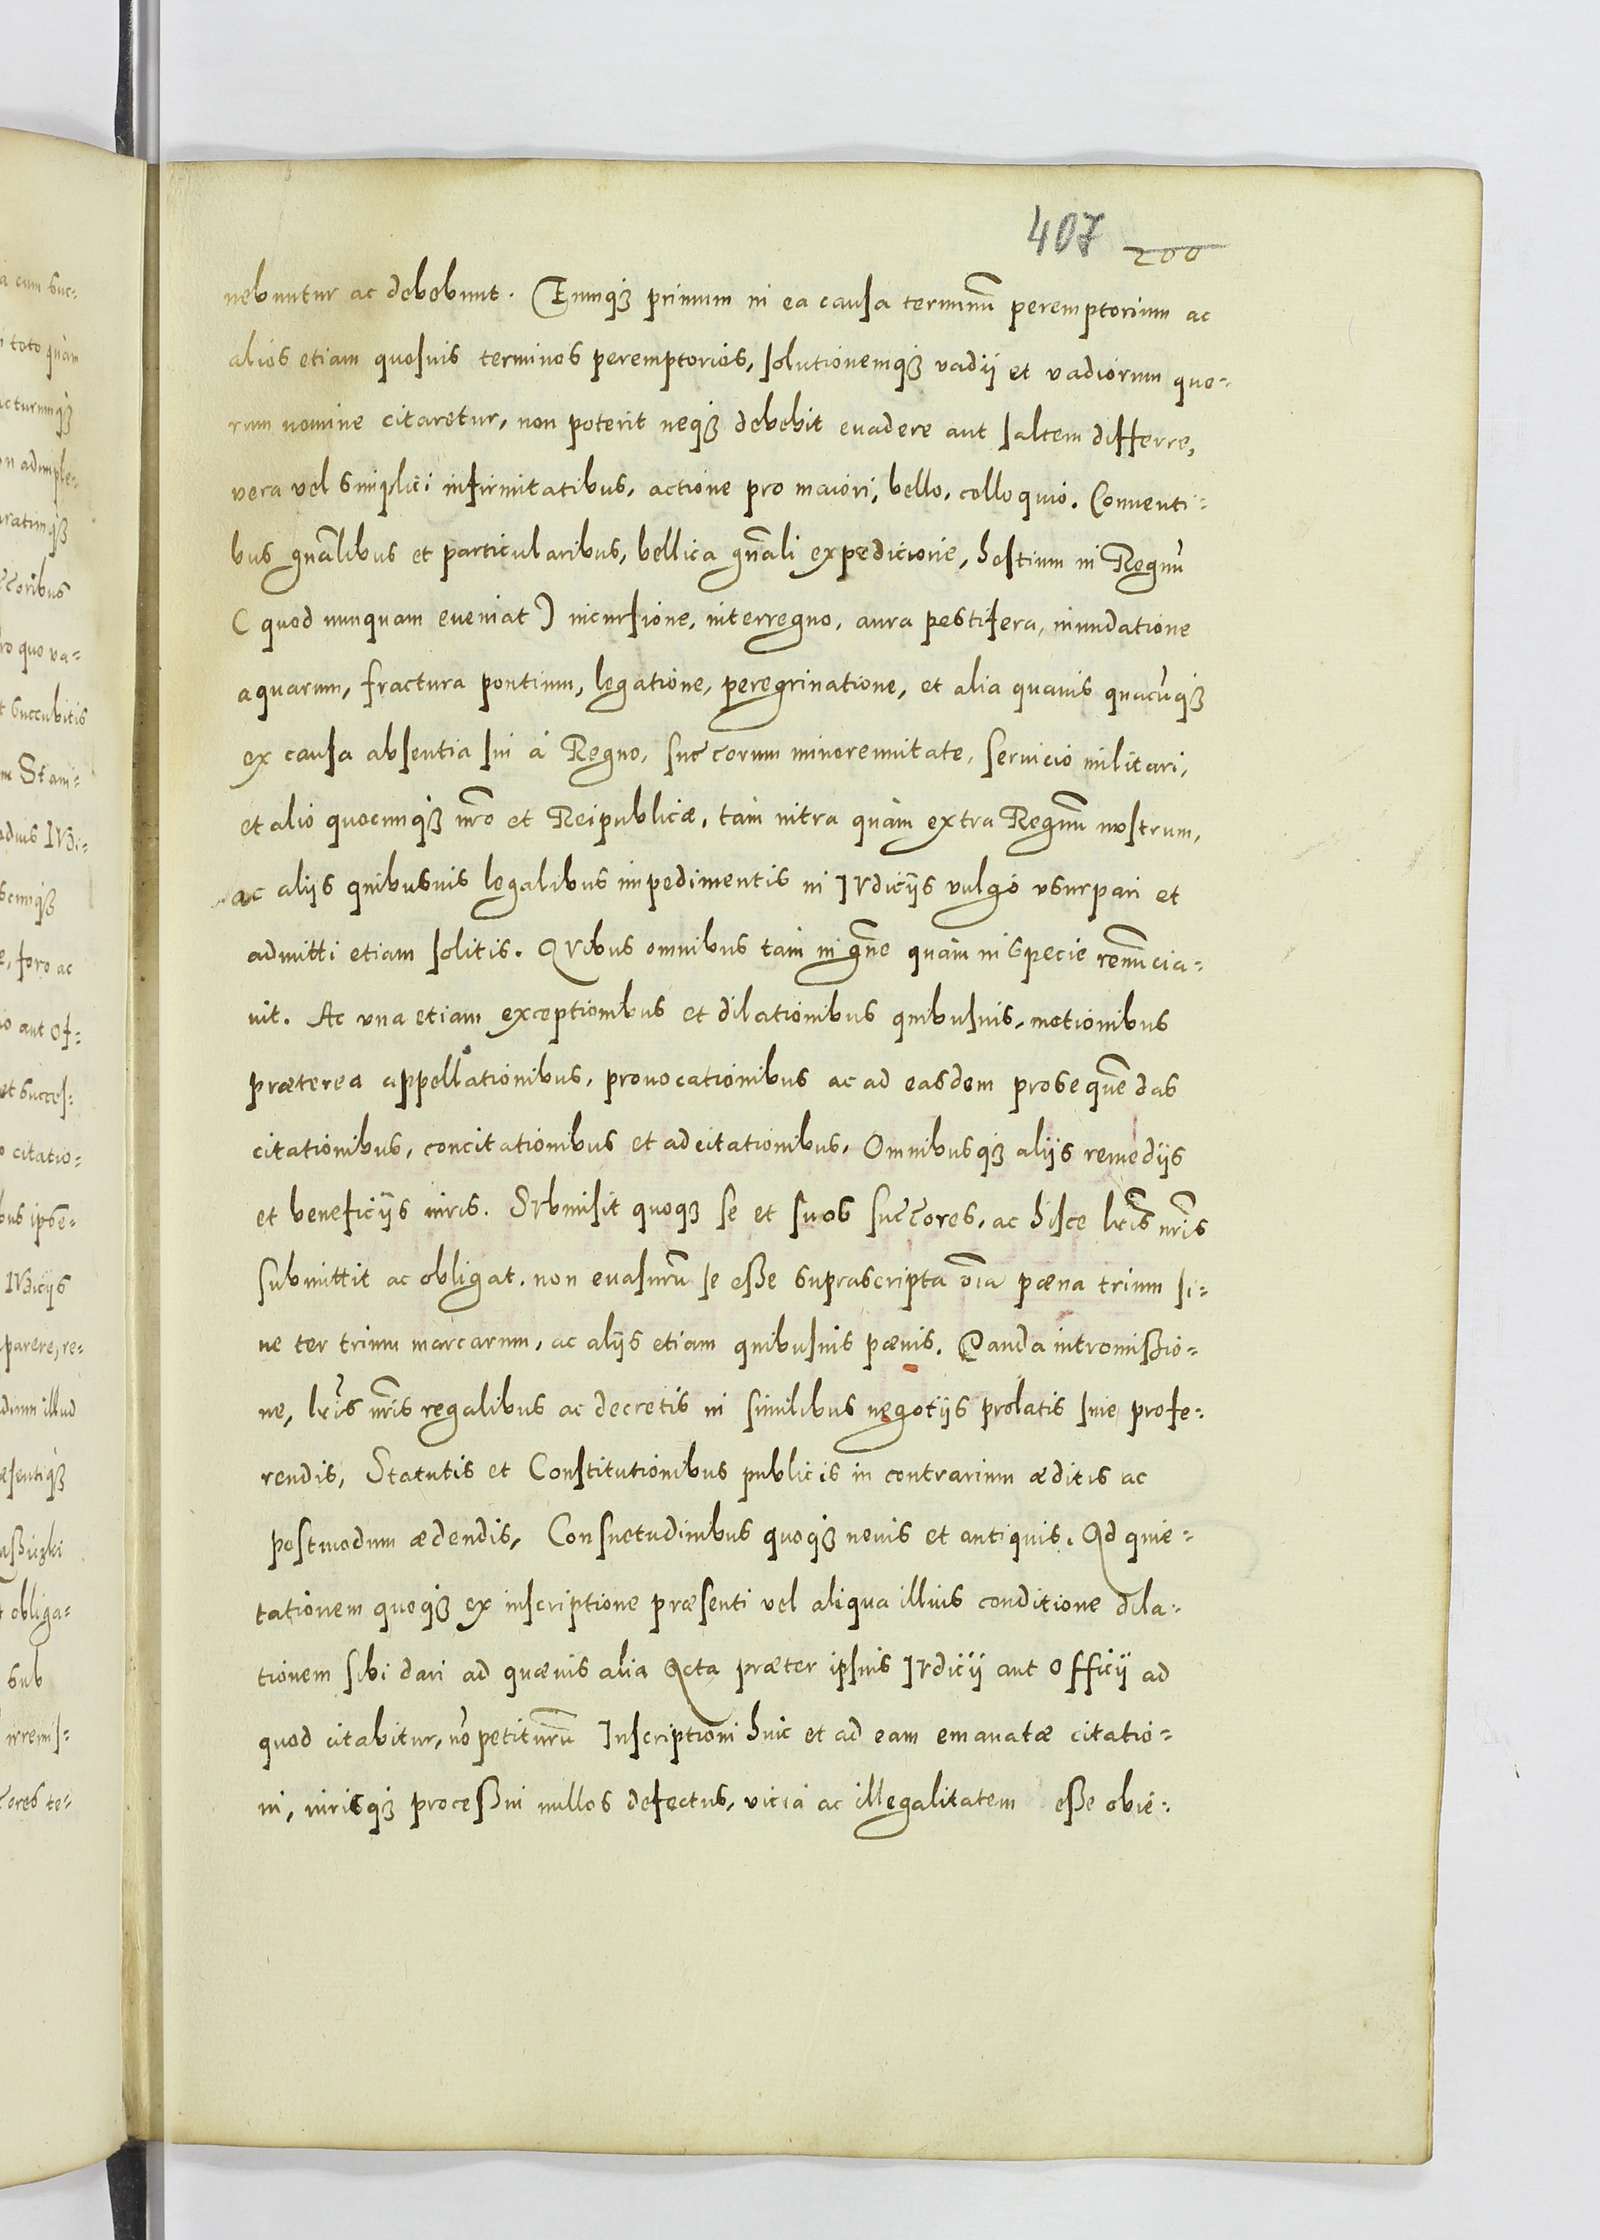 407 200
nebuntur ac debebunt. Eumq3 primum in ea causa terminũ peremptorium ac
alios etiam quosuis terminos peremptorios, solutionemq3 vadij et vadiorum quo-
rum nomine citaretur, non poterit neq3 debebit euadere aut saltem differre,
vera vel simplici infirmitatibus, actione pro maiori, bello, colloquio. Conuenti-
bus gnãlibus et particularibus, bellica gnãli expedicione, hostium in Regnũ
( quod nunquam eueniat ) incursione, interregno, aura pestifera, inundatione
aquarum, fractura pontium, legatione, peregrinatione, et alia quauis quacũq3
ex causa absentia sui à Regno, succorum minorennitate, seruicio militari,
et alio quocunq3 nr̃o et Reipublicæ, tàm intra quàm extra Regnũ nostrum,
ac alijs quibusuis legalibus impedimentis in Iudicijs vulgò vsurpari et
admitti etiam solitis. Quibus omnibus tàm in gñe quàm in specie renũcia-
uit. Ac vna etiam exceptionibus et dilationibus quibusuis, motionibus
præterea appellationibus, prouocationibus ac ad easdem prosequẽdas
citationibus, concitationibus et adcitationibus, Omnibusq3 alijs remedijs
et beneficijs iuris. Submisit quoq3 se et suos succores, ac hisce lr̃is nr̃is
submittit ac obligat, non euasurũ se eße suprascripta oĩa pæna trium si-
ue ter trium marcarum, ac alijs etiam quibusuis pænis. Danda intromißio-
ne, lr̃is nr̃is regalibus ac decretis in similibus negotijs prolatis siue profe-
rendis, Statutis et Constitutionibus publicis in contrarium æditis ac
postmodum ædendis, Consuetudinibus quoq3 nouis et antiquis. Ad quie-
tationem quoq3 ex inscriptione præsenti vel aliqua illius conditione dila-
tionem sibi dari ad quæuis alia Acta præter ipsius Iudicij aut Officij ad
quod citabitur, nõ petiturũ Inscriptioni huic et ad eam emanatæ citatio-
ni, iurisq3 proceßui nullos defectus, vicia ac illegalitatem eße obie-